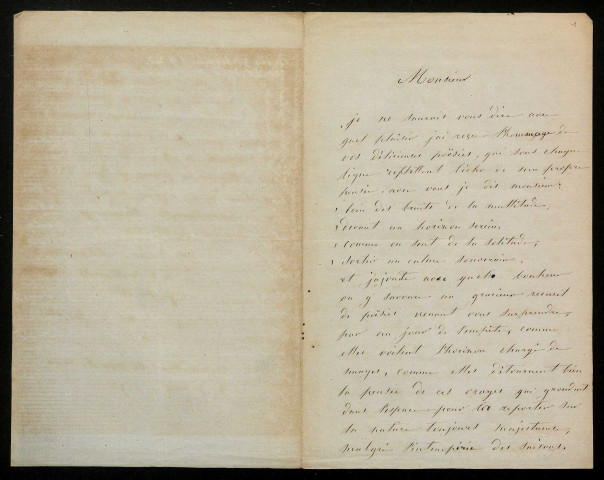 Monsieur
je ne saurais vous dire avec
quel plaisir j'ai reçu l'hommage de
vos délicieuses poësies, qui sous chaque
ligne reflettent l'écho de son propre
pensée, avec vous je dis monsieur
loin des bruits de la multitude,
devant un horizon serein,
comme on sent de la solitude,
sortir un calme souverain,
et j'ajoute avec quel bonheur
on y savoure un gracieux recueil
de poësies venant vous surprendre,
par un jour de tempête, comme
elles voilent l'horizon chargé de
nuages, comme elles détournent bien
la pensée de ces orages qui grondent
dans l'espace pour la reporter sur
la nature toujours majestueuse,
malgré l'intempérie des saisons.